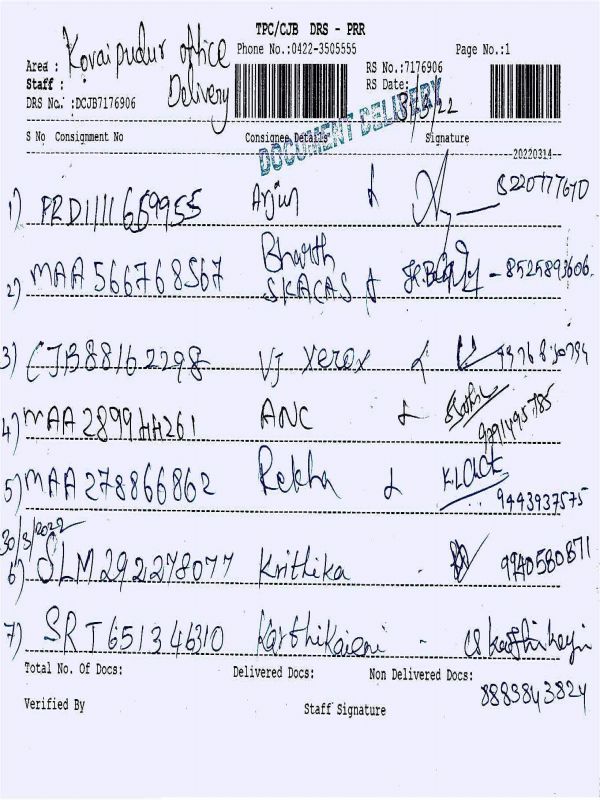 TPC/CJB DRS - PRR
Area : Kovaipudur office Phone No.:0422-3505555 RS No.:7176906 Page No.:1
Staff : Delivery RS Date:
DRS No. :DCJB7176906
DOCUMENT DELIVERY
S No Consignment No Consignee Details Signature
20220314
1) PRD1111659955 Arjun 8220777670
2) MAA566768567 Bharth SKACAS 8525893606
3) CJB88162298 VJ Xerox
4) MAA289944261 ANC
5) MAA278866862 Rekha KLCACK 9443937575
30/3/2022
6) SLM292278077 Krithika 9940580871
7) SRT651346310 Karthikaieni
Total No. Of Docs: Delivered Docs: Non Delivered Docs:
8883843824
Verified By Staff Signature